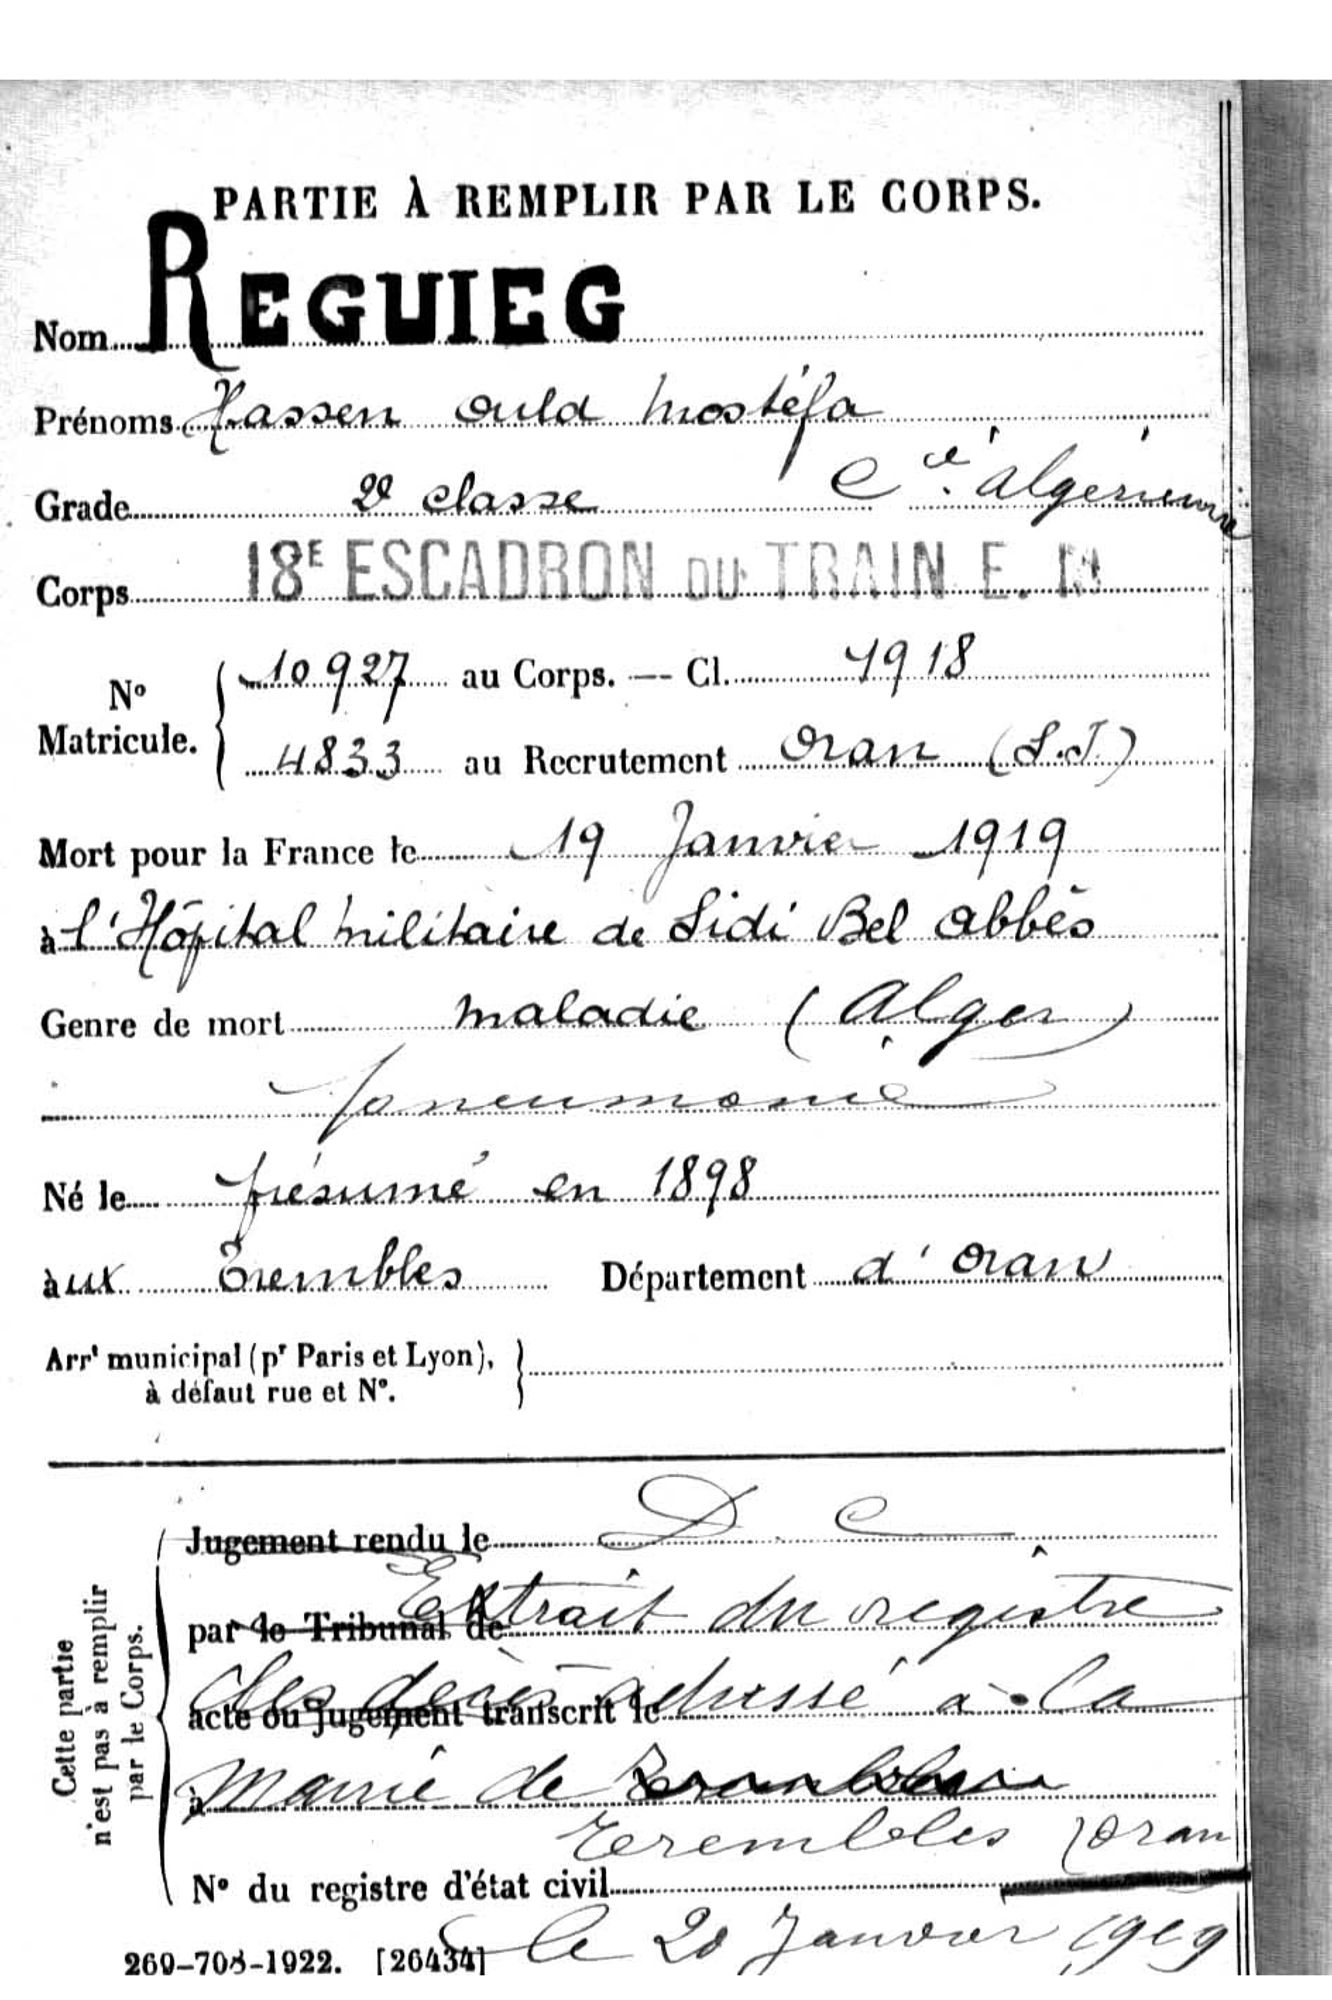 PARTIE À REMPLIR PAR LE CORPS.
Nom REGUIEG
Prénoms Hassen ould Mostéfa
Grade 2e classe Cie algérienne
Corps 18E ESCADRON DU TRAIN E. M
No Matricule. 10927 au Corps. — Cl. 1918
4833 au Recrutement Oran (S.I.)
Mort pour la France le 19 Janvier 1919
à l'Hôpital militaire de Sidi Bel abbès
Genre de mort maladie (Alger)
pneumonie
Né le présumé en 1898
àux Trembles Département d'Oran
Arrt municipal (pr Paris et Lyon),
à défaut rue et No.
Cette partie
n'est pas à remplir
par le Corps.
Jugement rendu le D. C
par le Tribunal de Extrait du registre
acte ou jugement transcrit le des décès adressé à la
à Mairie de
Trembles Oran
No du registre d'état civil
le 20 Janvier 1919
269-708-1922. [26434]